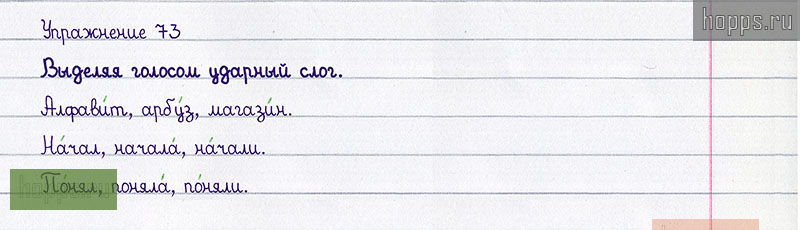 hopps.ru
Упражнение 73
Выделяя голосом ударный слог.
Алфави́т, арбу́з, магази́н.
На́чал, начала́, на́чали.
По́нял, поняла́, по́няли.